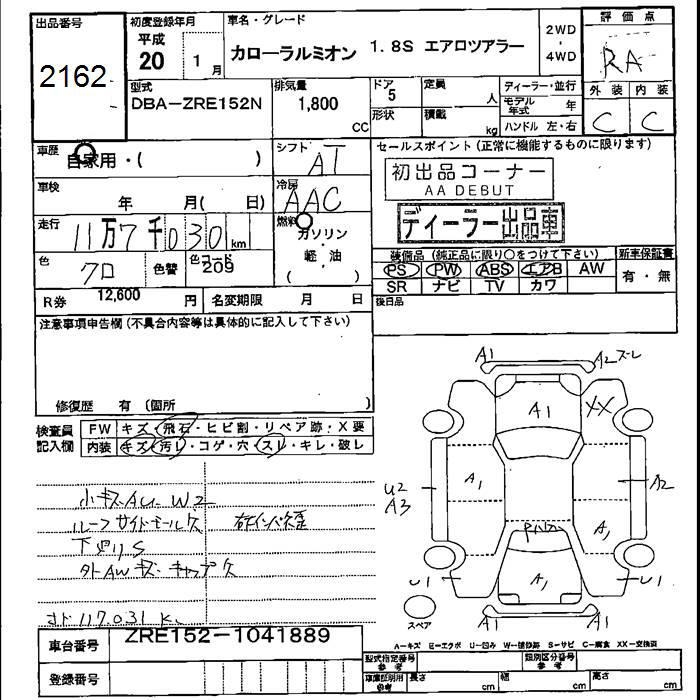 出品番号
2162
初度登録年月
平成
20 1 月
車名・グレード
カローラルミオン 1.8S エアロツアラー
2WD
・
4WD
評価点
RA
型式
DBA-ZRE152N
排気量
1,800
CC
ドア
5
形状
定員
人
積載
kg
ディーラー・並行
モデル年式 年
ハンドル 左・右
外装 内装
C C
車歴
自家用・( )
シフト
AT
車検
年 月( 日)
冷房
AAC
走行
11万7千030km
燃料
ガソリン
・
軽・油
( )
色
クロ
色替
色コード
209
R券 12,600 円
名変期限 月 日
セールスポイント(正常に機能するものに限ります)
初出品コーナー
AA DEBUT
ディーラー出品車
装備品(純正品に限り○をつけて下さい)
PS PW ABS エアB AW
SR ナビ TV カワ
新車保証書
有・無
後日品
注意事項申告欄(不具合内容等は具体的に記入して下さい)
修復歴 有(箇所 )
検査員
記入欄
FW キズ・飛石・ヒビ割・リペア跡・X要
内装 キズ・汚レ・コゲ・穴・スレ・キレ・破レ
小キズAU W2
ルーフサイドモール欠
下廻りS
外AWキズ キャップ欠
117.031 K
車台番号 ZRE152-1041889
登録番号
A1
A2 スレ
A1
XX
A1
U2
A3
A2
A1
A1
U1
U1
A1
A1
スペア
A-キズ E-エクボ U-凹み W-補修跡 S-サビ C-腐食 XX-交換済
型式指定番号
参考
類別区分番号
参考
車庫証明用
参考
長さ cm
幅 cm
高さ cm